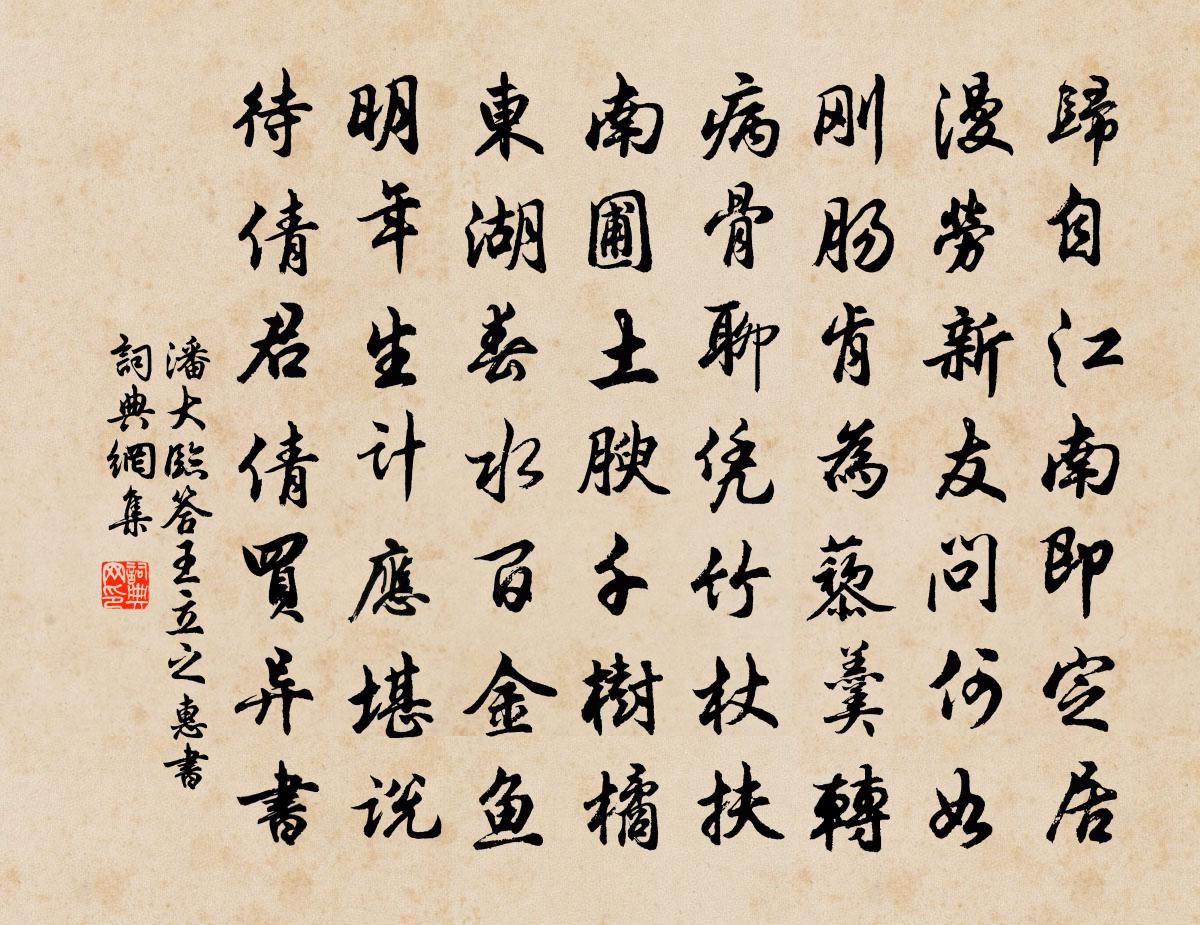 歸自江南即定居
漫勞新友問何如
刚腸肯為藜羹轉
病骨聊凭竹杖扶
南圃土腴千樹橘
東湖春水百金魚
明年生計應堪説
待倩君倩買异書
潘大臨答王立之惠書
詞典網集
詞典网印